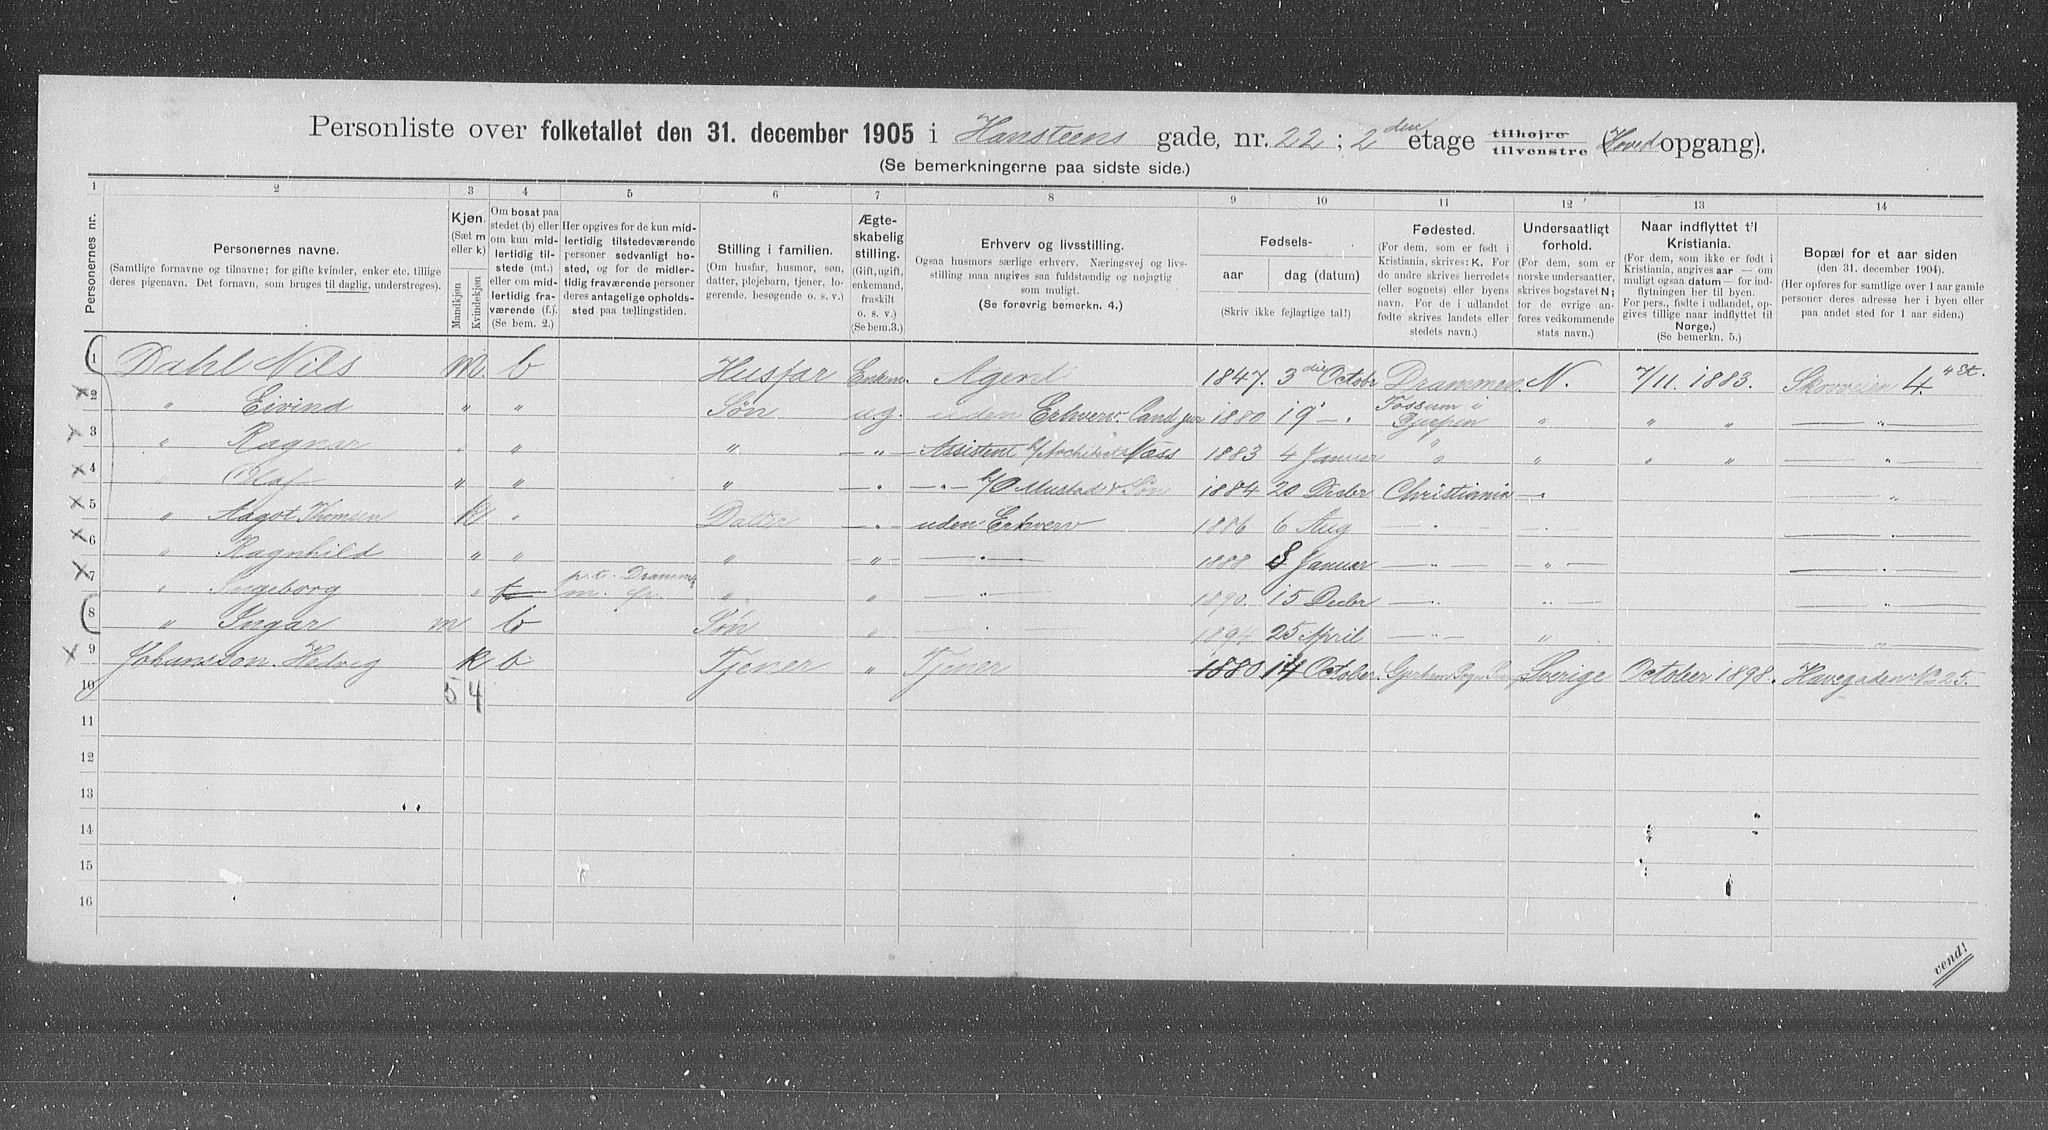 Personliste over folketallet den 31. december 1905 i Hansteens gade, nr. 22; 2den etage tilhøjre tilvenstre (Hovedopgang).
(Se bemerkningerne paa sidste side.)
1 2 3 4 5 6 7 8 9 10 11 12 13 14
Personernes nr.
Personernes navne.
(Samtlige fornavne og tilnavne; for gifte kvinder, enker etc. tillige deres pigenavn. Det fornavn, som bruges til daglig, understreges).
Kjøn. (Sæt m eller k)
Mandkjøn
Kvindekjøn
Om bosat paa stedet (b) eller om kun midlertidig tilstede (mt.) eller om midlertidig fraværende (f.). (Se bem. 2.)
Her opgives for de kun midlertidig tilstedeværende personer sedvanligt bosted, og for de midlertidig fraværende personer deres antagelige opholdssted paa tællingstiden.
Stilling i familien.
(Om husfar, husmor, søn, datter, plejebarn, tjener, logerende, besøgende o. s. v.)
Ægteskabelig stilling.
(Gift, ugift, enkemand, fraskilt o. s. v.) (Se bem. 3.)
Erhverv og livsstilling.
Ogsaa husmors særlige erhverv. Næringsvej og livsstilling maa angives saa fuldstændig og nøjagtig som muligt.
(Se forøvrig bemerkn. 4.)
Fødsels-
aar
dag (datum)
(Skriv ikke fejlagtige tal!)
Fødested.
(For dem, som er født i Kristiania, skrives: K. For de andre skrives herredets (eller sognets) eller byens navn. For de i udlandet fødte skrives landets eller stedets navn.)
Undersaatligt forhold.
(For dem, som er norske undersaatter, skrives bogstavet N; for de øvrige anføres vedkommende stats navn.)
Naar indflyttet til Kristiania.
(For dem, som ikke er født i Kristiania, angives aar — om muligt ogsaa datum — for indflytningen her til byen. For pers., fødte i udlandet, opgives tillige naar indflyttet til Norge.)
(Se bemerkn. 5.)
Bopæl for et aar siden
(den 31. december 1904).
(Her opføres for samtlige over 1 aar gamle personer deres adresse her i byen eller paa andet sted for 1 aar siden.)
1 Dahl Nils m. b Husfar Enkem. Agent 1847. 3die Octobr Drammen. N. 7/11. 1883. Skovveien 4. 4 Et.
2 " Eivind " " Søn ug. uden Erhverv. Cand jur 1880 19 — . Fossum i Gjerpen " " " — " —
3 " Ragnar " " " — " — Assistent b/ Architekt Næss 1883 4 Januar " " " " — " —
4 " Olaf " " " — " — — " — b/ O Mustad & Søn 1884 20 Decbr Christiania — " — " —
5 " Aagot Thomsen k " Datter — " — uden Erhverv 1886 6 Aug — " — — " — — " —
6 " Ragnhild " " " " — " — 1888 8 Januar — " — — " — — " —
7 " Ingeborg " p.t. Drammen " " — " — 1890. 15 Decbr — " — — " — — " —
8 " Ingar m b Søn " — " — 1894 25 April — " — " — " —
9 Johansson. Hedvig k b Tjener " Tjener 1880 14 October. Sverige October 1898. Havegaden No 25.
10 5 4
11
12
13
14
15
16
vend!